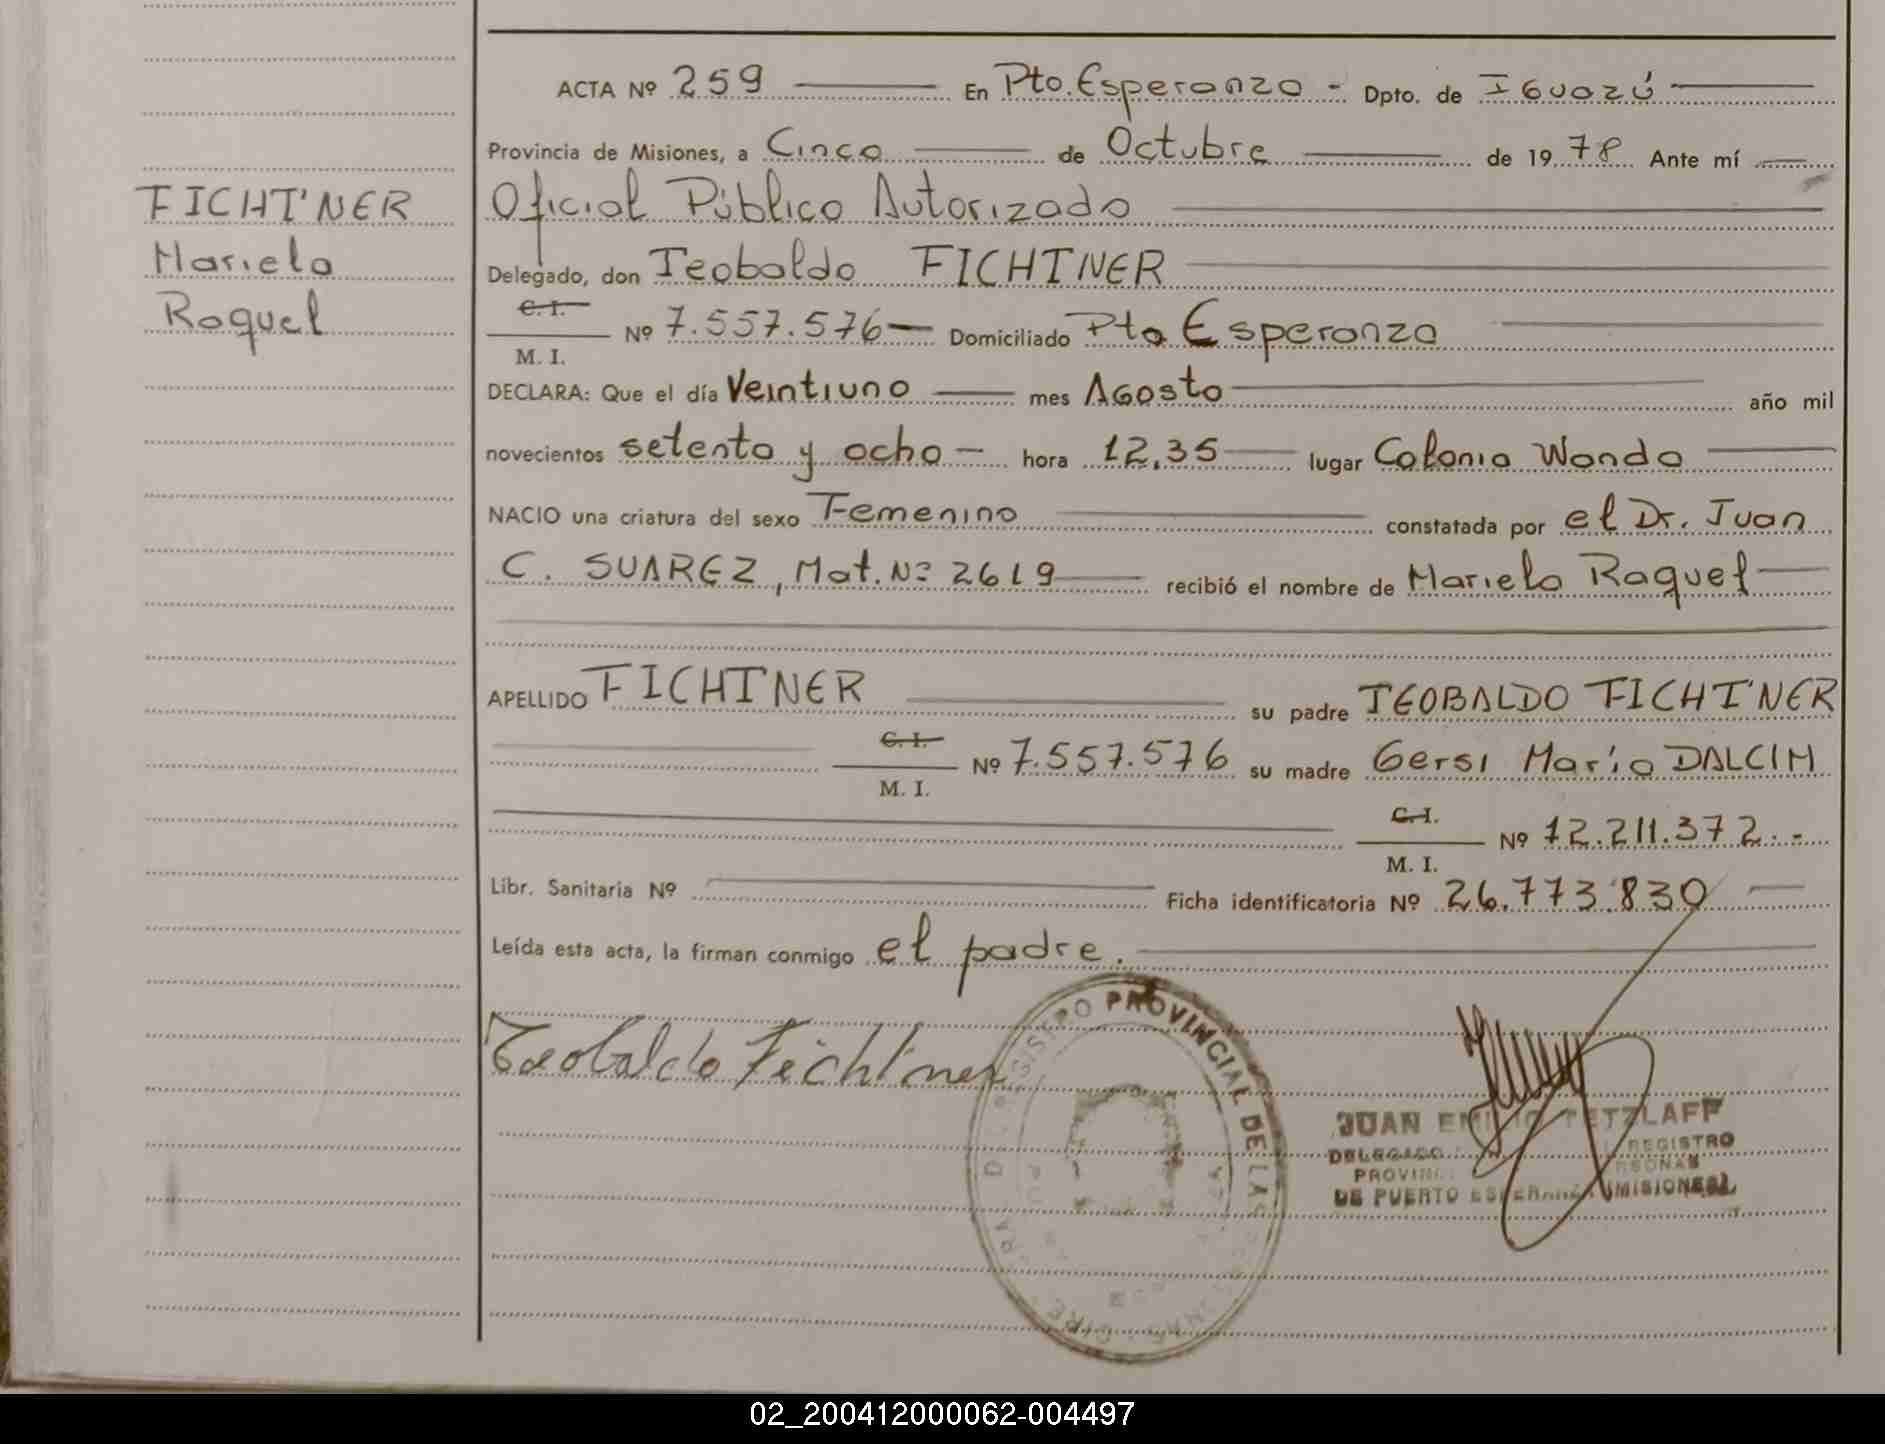 ACTA Nº 259 En Pto. Esperanza - Dpto. de IGUAZÚ
Provincia de Misiones, a Cinco de Octubre de 1978 Ante mí
FICHTNER
Mariela
Raquel
Oficial Público Autorizado
Delegado, don Teobaldo FICHTNER
C. I.
M. I.
Nº 7.557.576 Domiciliado Pto Esperanza
DECLARA: Que el día Veintiuno mes Agosto año mil
novecientos setenta y ocho hora 12,35 lugar Colonia Wanda
NACIO una criatura del sexo Femenino constatada por el Dr. Juan
C. SUAREZ, Mat. Nº 2619 recibió el nombre de Mariela Raquel
APELLIDO FICHTNER su padre TEOBALDO FICHTNER
C. I.
M. I.
Nº 7.557.576 su madre Gersi María DALCIM
C. I.
M. I.
Nº 12.211.372.-
Libr. Sanitaria Nº Ficha identificatoria Nº 26.773.830
Leída esta acta, la firman conmigo el padre.
Teobaldo Fichtner
REGISTRO PROVINCIAL DE LAS
JUAN EMILIO TETZLAFF
DELEGADO REGISTRO
DE PUERTO ESPERANZA (MISIONES)
02_200412000062-004497